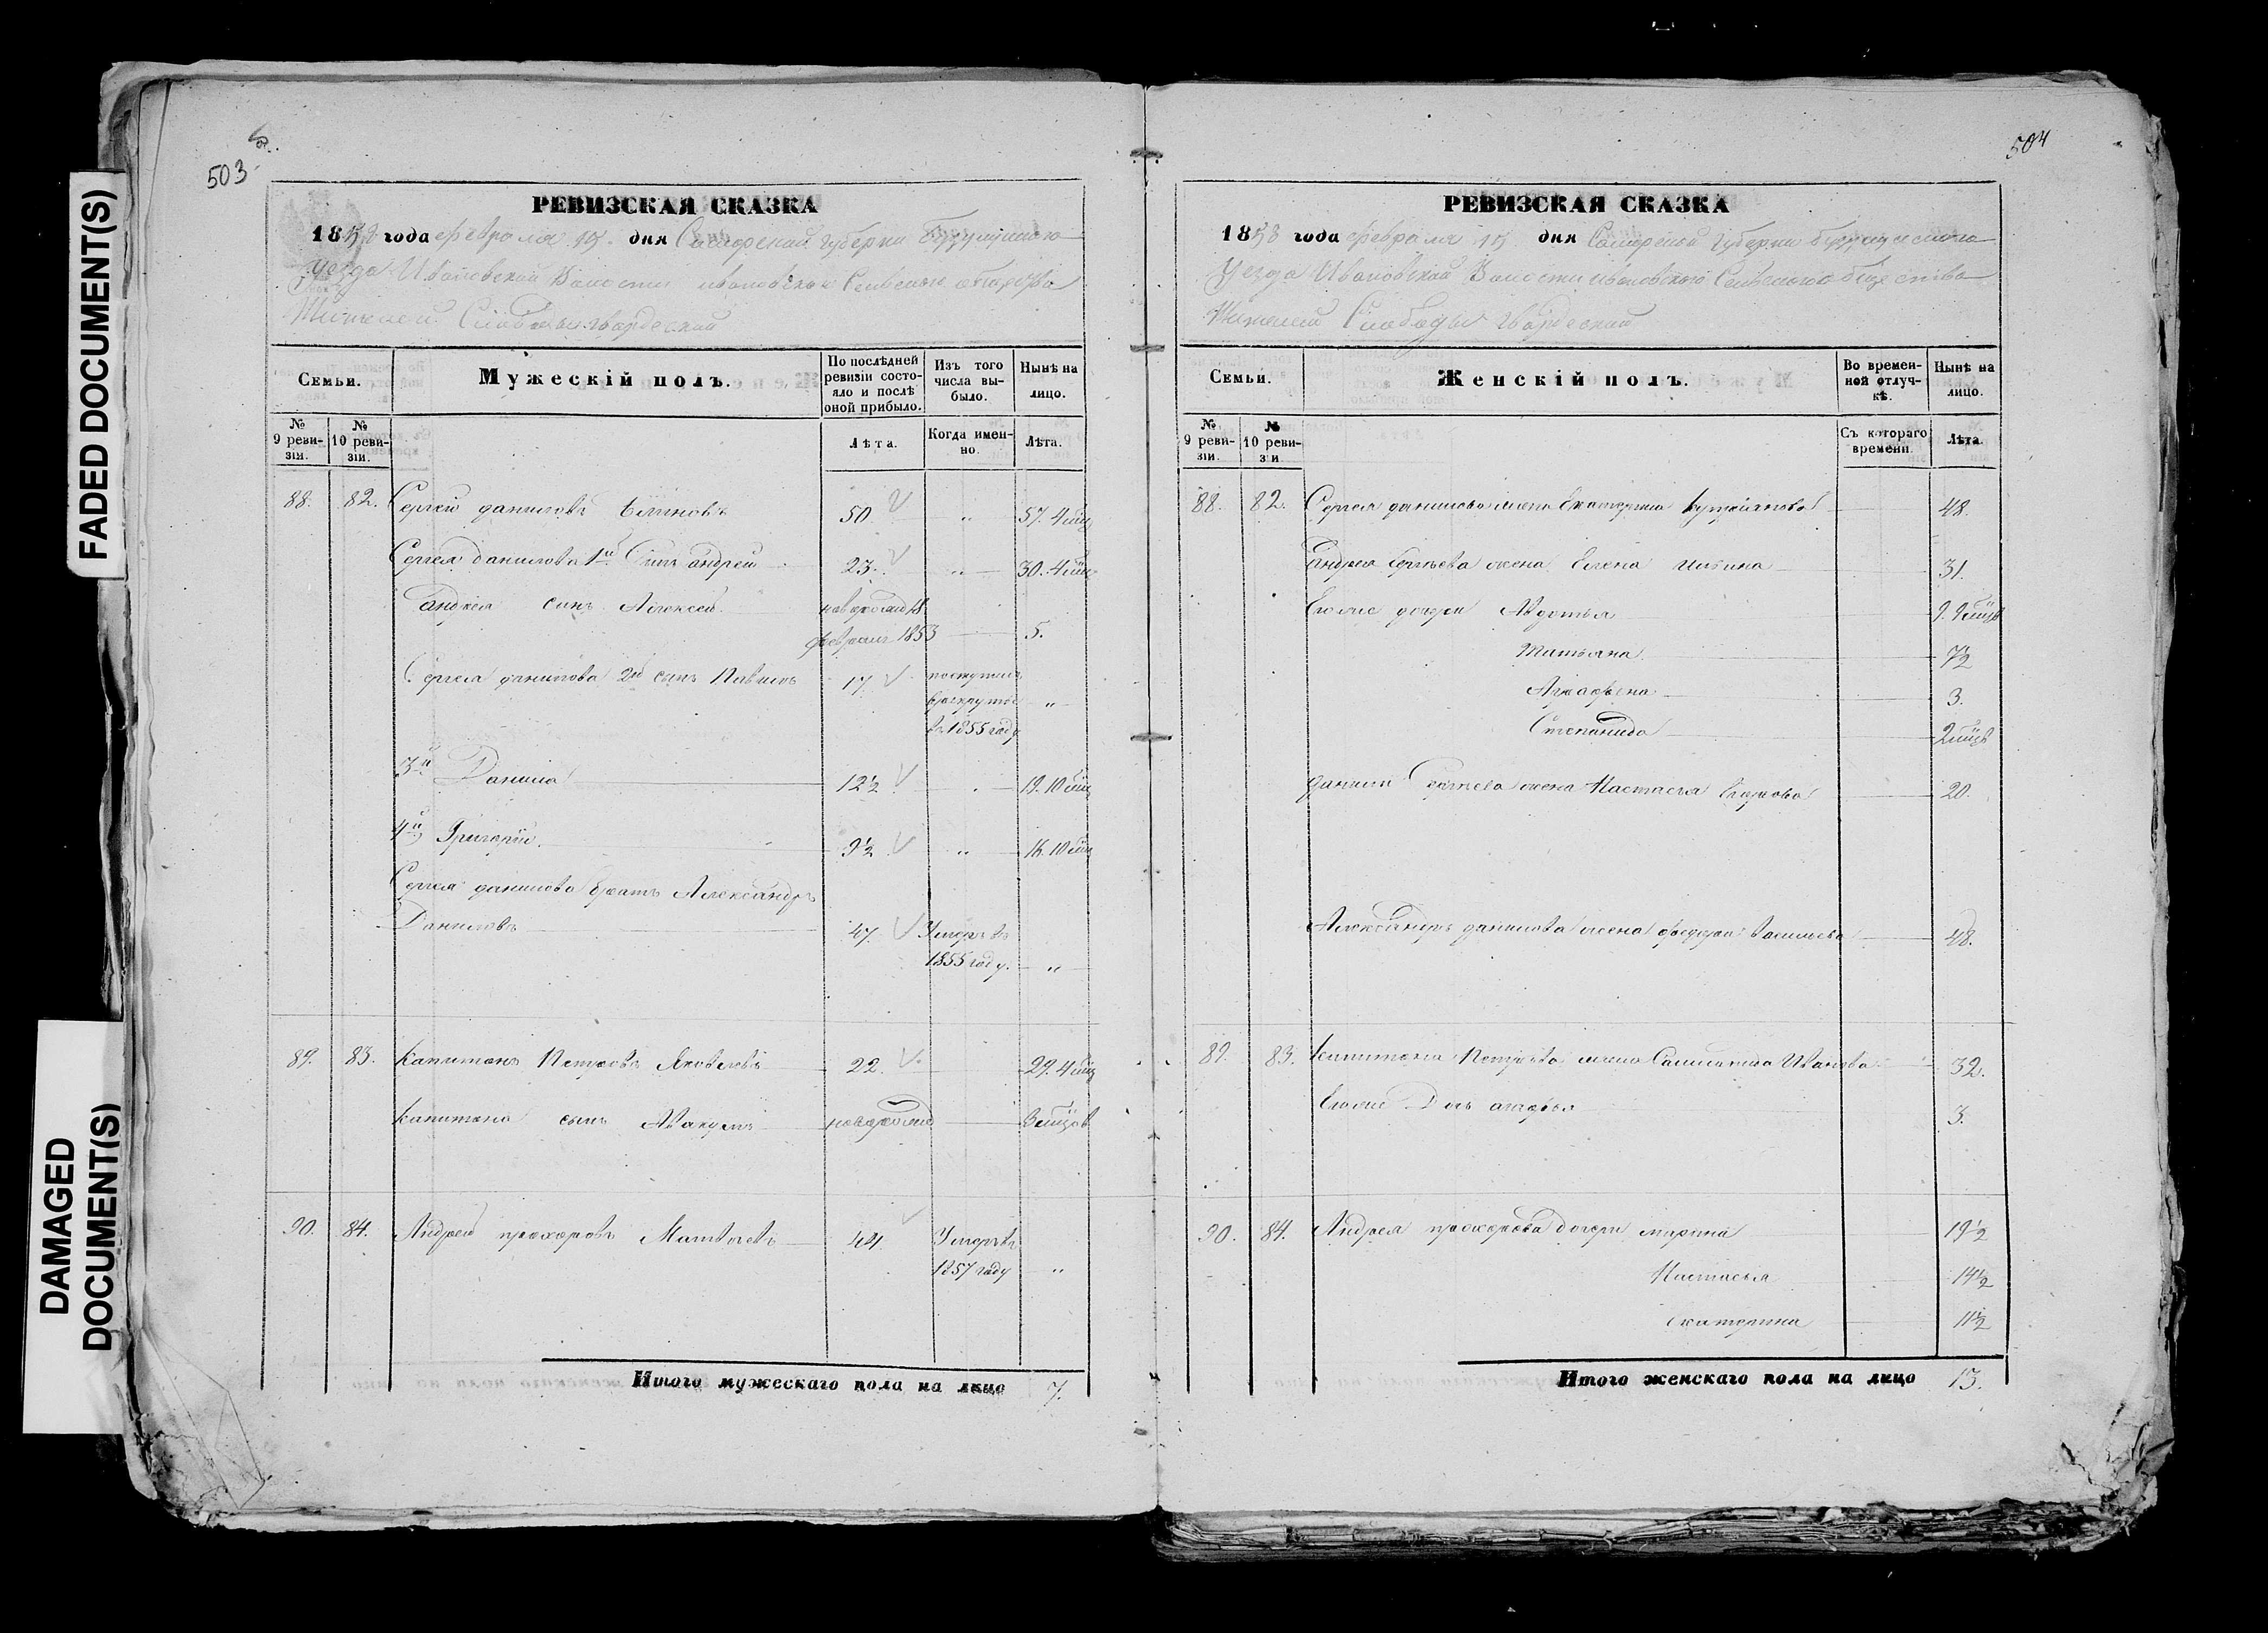 FADED DOCUMENT(S)
DAMAGED
DOCUMENT(S)
503
РЕВИЗСКАЯ СКАЗКА
1858 года февраля 15 дня Самарской губернии Бузулукскаго
уезда Ивановской Волости Ивановскаго Сельскаго общества
Жителей Слободы Гвардейской
Семьи.
Мужескій полъ.
По послѣдней
ревизіи состо-
яло и послѣ
оной прибыло.
Изъ того
числа вы-
было.
Нынѣ на
лицо.
№
9 реви-
зіи.
№
10 реви-
зіи.
Лѣта.
Когда имен-
но.
Лѣта.
88. 82. Сергей даниловъ 50 " 57. 4 мѣц
Сергея данилова 1й Сынъ андрей 23. " 30. 4 мѣц
андрея сынъ Алексей новорожд 18
февраля 1853 5.
Сергея данилова 2й сынъ Павилъ 17 поступилъ
врекруты "
въ 1855 году
3й Данила 12½ " 19. 10 мѣц
4й Григорій. 9½ " 16. 10 мѣц
Сергея данилова братъ Александръ
Даниловъ 47. Умеръ въ
1855 году. "
89. 83. Капитонъ Петровъ Яковлевъ 22. 29. 4 мѣц
Капитона сынъ Авакумъ новорожд 3 мѣцов
90. 84. Андрей прохоровъ Матвѣевъ 44. Умеръ въ
1857 году "
Итого мужескаго пола на лицо 7.
504
РЕВИЗСКАЯ СКАЗКА
1858 года февраля 15 дня Самарской Губернии Бузулукскаго
Уезда Ивановской Волости Ивановскаго Сельскаго общества
Жителей Слободы Гвардейской
Семьи.
Женскій полъ.
Во времен-
ной отлуч-
кѣ.
Нынѣ на
лицо.
№
9 реви-
зіи.
№
10 реви-
зіи.
Съ котораго
времени.
Лѣта.
88. 82. Сергея данилова жена Екатерина 48.
андрея Сергѣева жена Елена Ильина 31.
Егоже дочери Авдотья 9. 9 мѣцъ
Татьяна 7½
Аграфена 3.
Степанида 2 мѣцъ
данилы Сергѣева жена Настасья 20.
Александра данилова жена федора васильева 48.
89. 83. Капитона Петрова жена Саломанида Иванова 32.
Егоже Дочь агафья 3.
90. 84. Андрея прохорова дочери марина 19½
Настасья 14½
екатерина 11½
Итого женскаго пола на лицо 13.